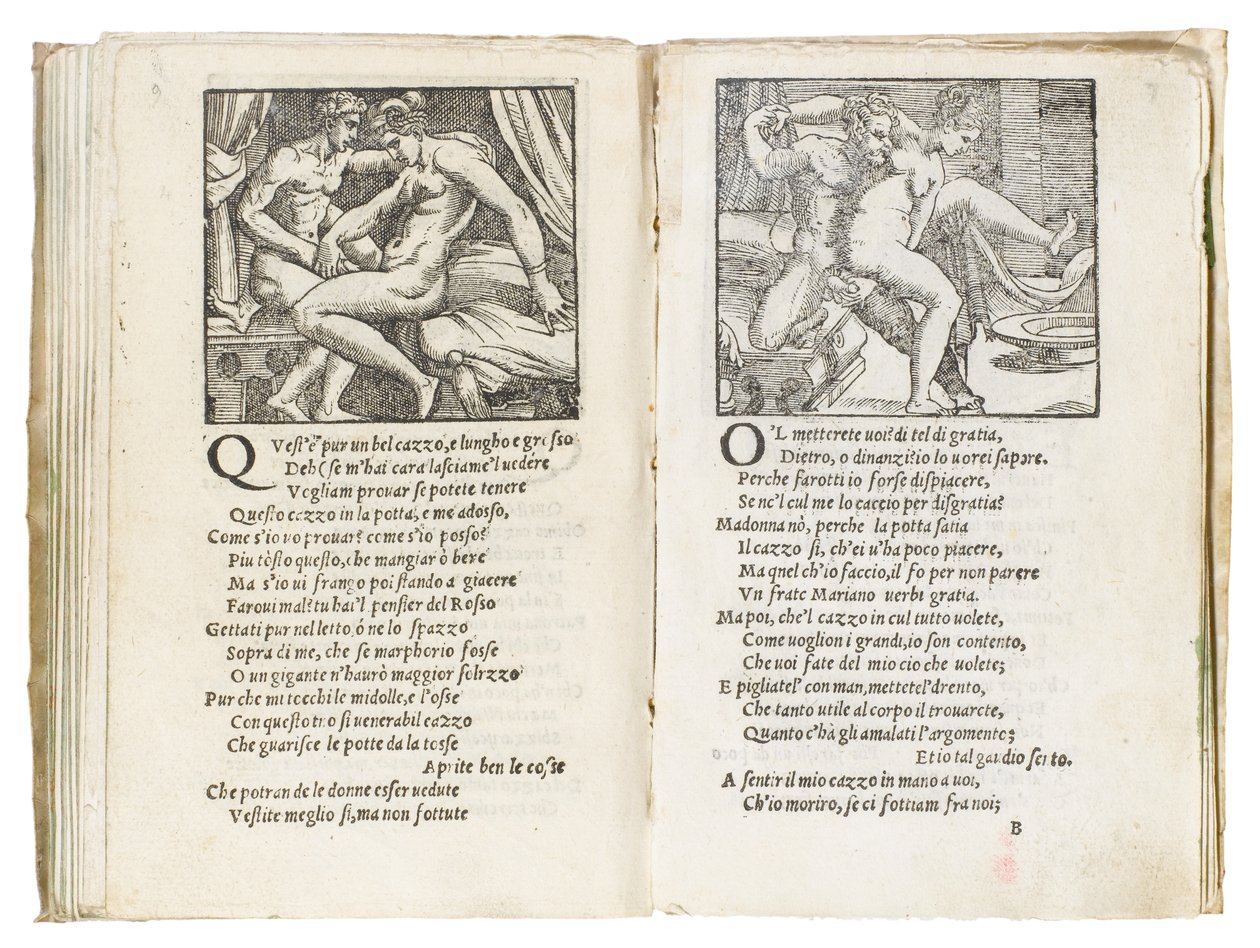 9
4
QVest'è pur un bel cazzo, e lungho e grosso
Deh (se m'hai cara lasciame'l vedére
Vogliam provar se potete tenere
Questo cazzo in la potta, e me adosso,
Come s'io vo provar? come s'io posso?
Piu tosto questo, che mangiar ò bere
Ma s'io ui frango poi stando a giacere
Faroui mal? tu hai'l pensier del Rosso
Gettati pur nel letto, ò ne lo spazzo
Sopra di me, che se marphorio fosse
O un gigante n'haurò maggior solazzo
Pur che mi tocchi le midolle, e l'osse
Con questo tuo si uenerabil cazzo
Che guarisce le potte da la tosse
Aprite ben le cosse
Che potran de le donne esser uedute
Vestite meglio si, ma non fottute
O'L metterete uoi? di tel di gratia,
Dietro, o dinanzi? io lo uorei sapore.
Perche farotti io forse dispiacere,
Se ne'l cul me lo caccio per disgratia?
Madonna nò, perche la potta satia
Il cazzo sì, ch'ei u'ha poco piacere,
Ma quel ch'io faccio, il fo per non parere
Vn frate Mariano uerbi gratia.
Ma poi, che'l cazzo in cul tutto uolete,
Come uoglion i grandi, io son contento,
Che uoi fate del mio cio che uolete;
E pigliatel' con man, mettetel' drento,
Che tanto utile al corpo il trouarete,
Quanto c'hà gli amalati l'argomento;
Et io tal gaudio sento.
A sentir il mio cazzo in mano a uoi,
Ch'io moriro, se ci fottiam fra noi;
B